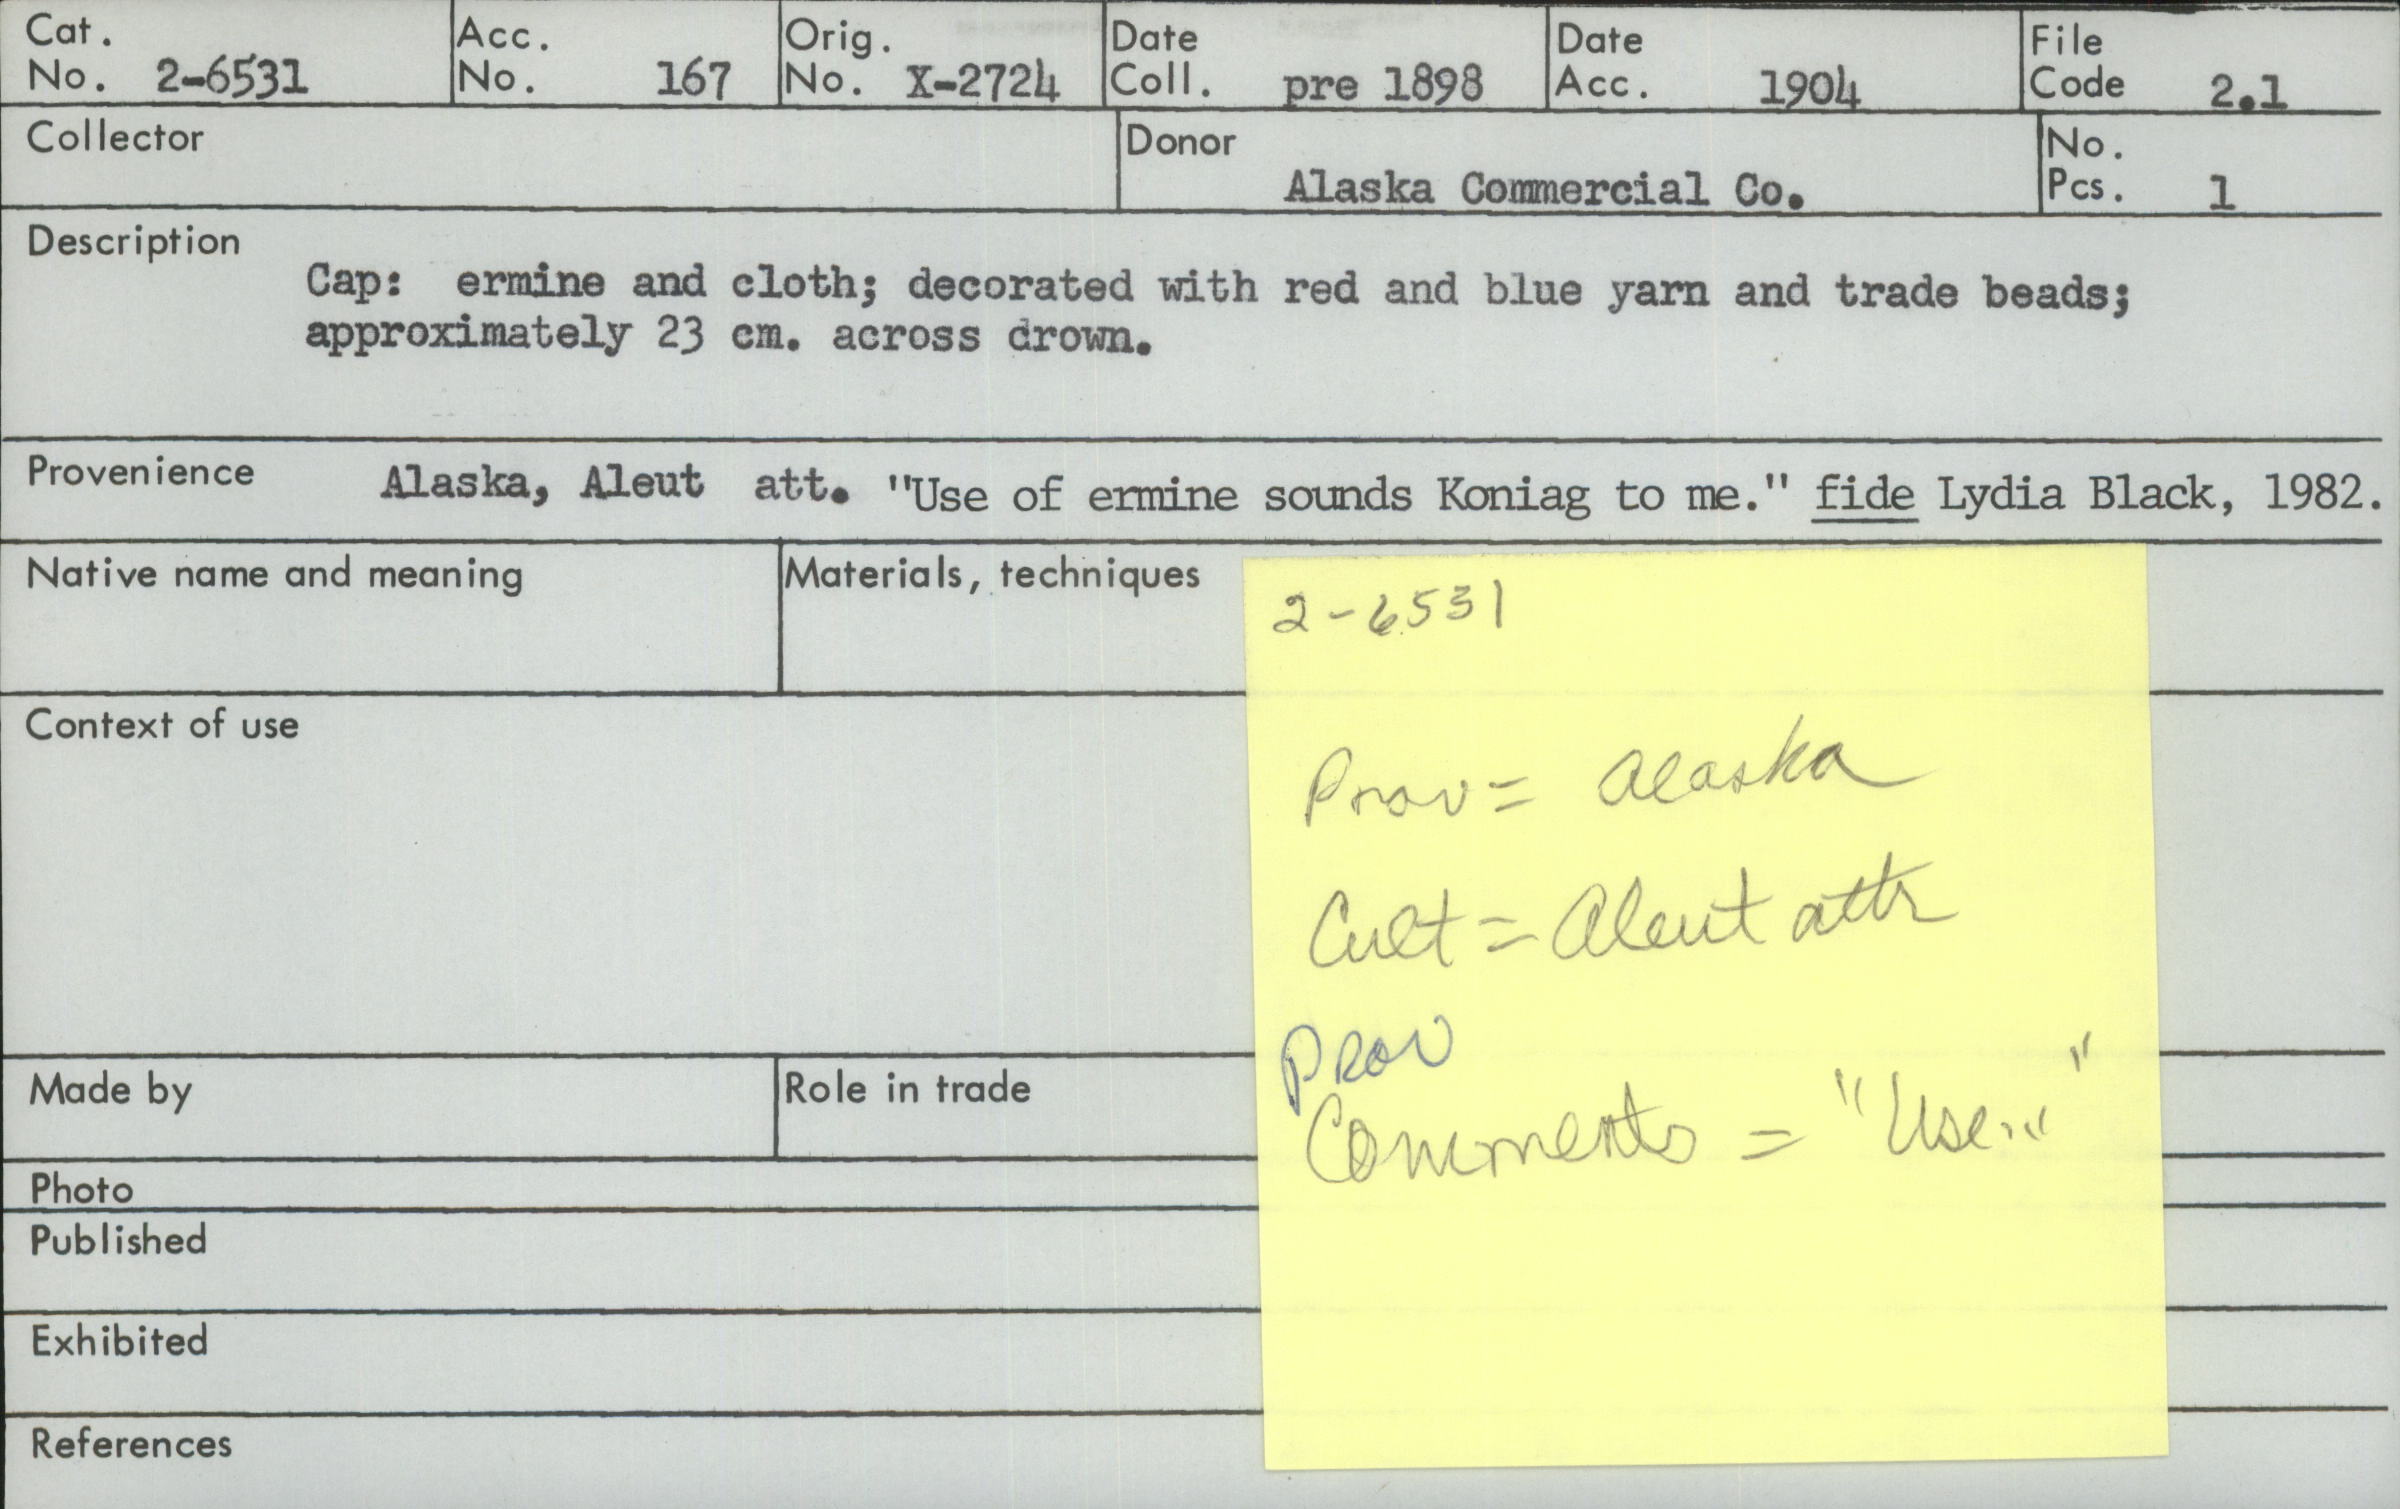 Cat. No. 2-6531
Acc. No. 167
Orig. No. X-2724
Date Coll. pre 1898
Date Acc. 1904
File Code 2.1
Collector
Donor Alaska Commercial Co.
No. Pcs. 1
Description
Cap: ermine and cloth; decorated with red and blue yarn and trade beads;
approximately 23 cm. across drown.
Provenience Alaska, Aleut att. "Use of ermine sounds Koniag to me." fide Lydia Black, 1982.
Native name and meaning
Materials, techniques
2-6531
Prov = Alaska
Cult = Aleut attr
Prov
Comments = "Use..."
Context of use
Made by
Role in trade
Photo
Published
Exhibited
References